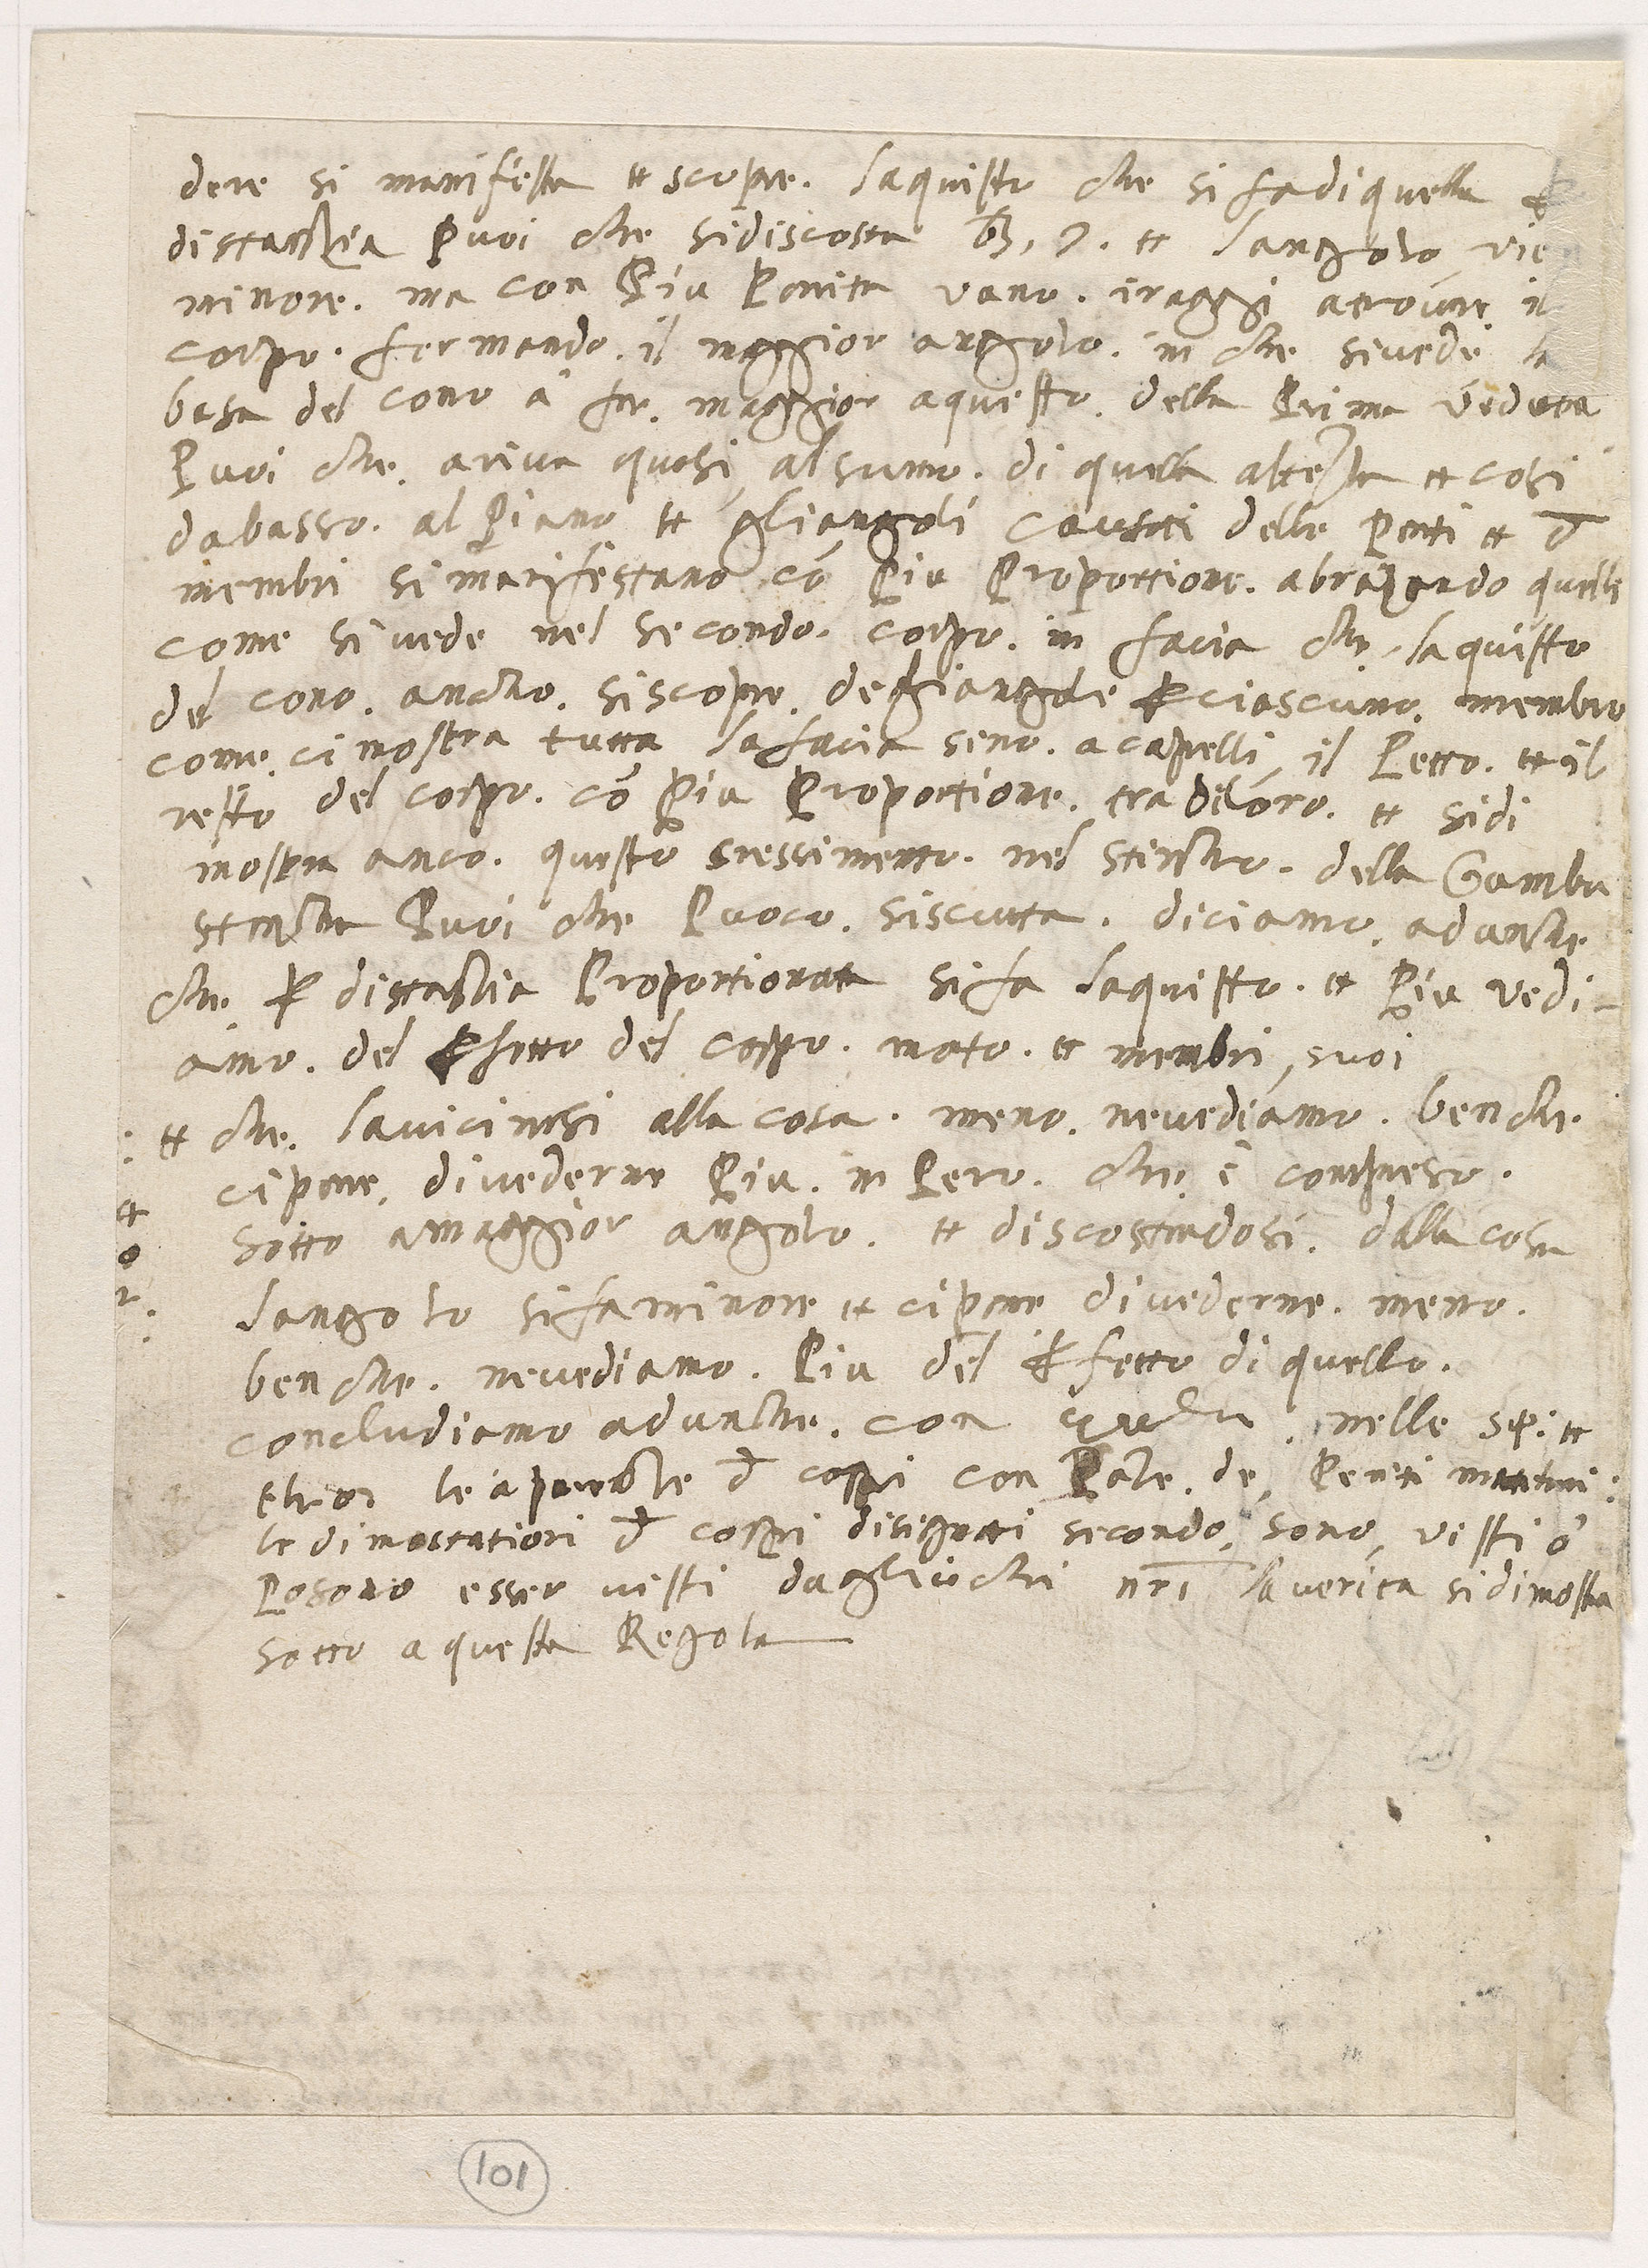 dere si manifesta et scopre. laquisto che si fa di quella
distantia puoi che sidiscosta et langolo vie
minore. ma con Piu Ponita vano. iraggi atrovare il
corpo. fermando. il maggior angolo. in che sivede la
basa del cono a far. maggior aquisto. della Prima veduta
Puoi che. ariva quasi al sumo. di quella altezza et cosi
dabasso. al Piano et gliangoli causati delle Parti et
membri si manifestano cō Piu Proportione. abrazando quelli
come si vede nel secondo. corpo. in facia che laquisto
del cono. ancho. siscopre. degliangole ciascuno. membro
come. ci mostra tutta lafacia seno. a capelli il Petto. et il
resto del corpo. cō Piu Proportione. tra deloro. et sidi
mostra anco. questo cressimento. nel stincho. della Gamba
stancha Puoi che Puoco. siscurta. diciamo. adunche
che. ꝑ distantia Proportionata sifa laquisto. et Piu vedi-
amo. del ꝑfetto del corpo. mato. et membri suoi
: et che. lavicinarsi alla cosa. meno. nevediamo. benche.
cipare. divederne Piu. in Pero. che. è compreso.
et
sotto amaggior angolo. et discostandosi. dalla cosa
o
langolo sifaminore et cipare divederne. meno.
benche. nevediamo. Piu del ꝑfetto di quello.
concludiamo adunche. con nelle
le aparentie corpi con Parti
le dimostrationi corpi disignati secondo, sono, visti ò
Posono esser visti dagliochi nr̄i laverita sidimostra
sotto a questa Regola
101